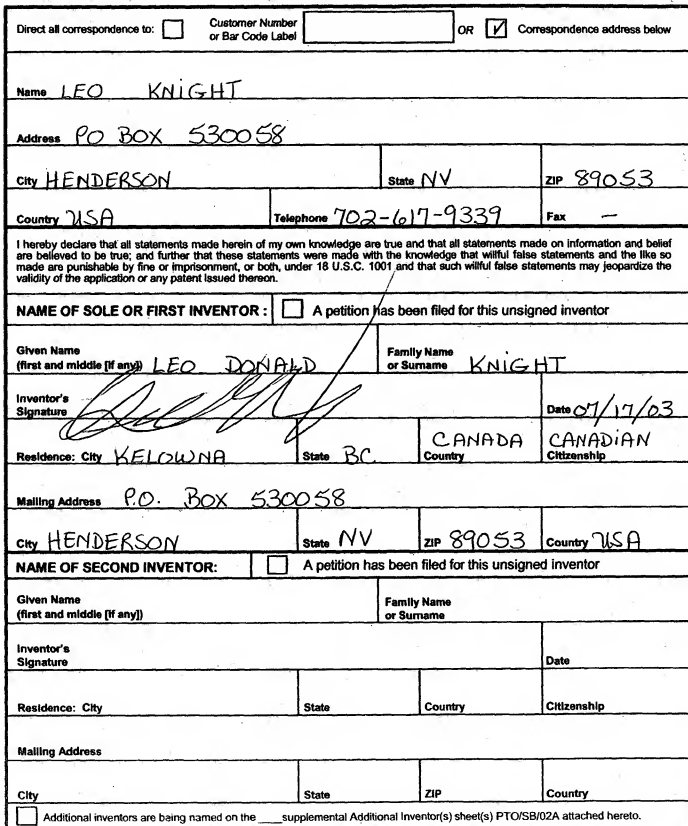 Direct all correspondence to: Customer Number or Bar Code Label OR Correspondence address below
Name LEO KNIGHT
Address PO BOX 530058
City HENDERSON State NV ZIP 89053
Country USA Telephone 702-617-9339 Fax –
I hereby declare that all statements made herein of my own knowledge are true and that all statements made on information and belief
are believed to be true; and further that these statements were made with the knowledge that willful false statements and the like so
made are punishable by fine or imprisonment, or both, under 18 U.S.C. 1001 and that such willful false statements may jeopardize the
validity of the application or any patent issued thereon.
NAME OF SOLE OR FIRST INVENTOR : A petition has been filed for this unsigned inventor
Given Name (first and middle [if any]) LEO DONALD Family Name or Surname KNIGHT
Inventor's Signature Date 07/17/03
Residence: City KELOWNA State BC Country CANADA Citizenship CANADIAN
Mailing Address P.O. BOX 530058
City HENDERSON State NV ZIP 89053 Country USA
NAME OF SECOND INVENTOR: A petition has been filed for this unsigned inventor
Given Name (first and middle [if any]) Family Name or Surname
Inventor's Signature Date
Residence: City State Country Citizenship
Mailing Address
City State ZIP Country
Additional inventors are being named on the ____supplemental Additional Inventor(s) sheet(s) PTO/SB/02A attached hereto.